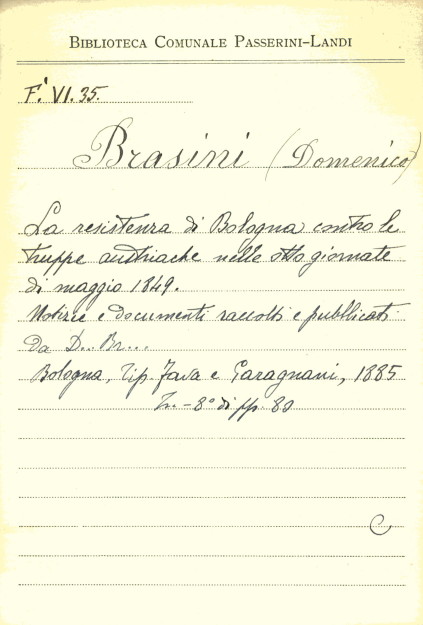 BIBLIOTECA COMUNALE PASSERINI-LANDI
F.' VI. 35.
Brasini (Domenico)
La resistenza di Bologna contro le
truppe austriache nelle otto giornate
di maggio 1849.
Notizie e documenti raccolti e pubblicati
da D... Br...
Bologna, Tip. Fava e Garagnani, 1885
In-8° di pp. 80
C